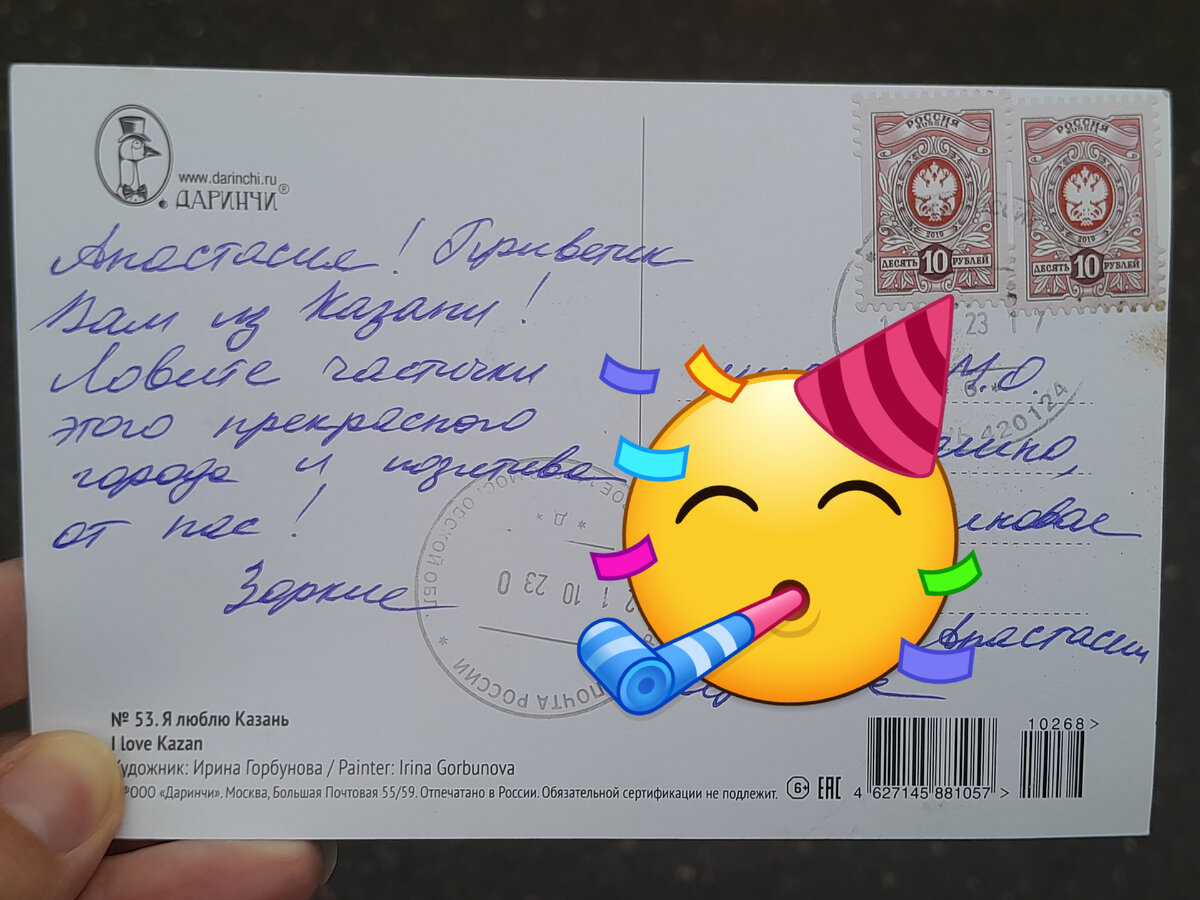 www.darinchi.ru
ДАРИНЧИ®
Анастасия! Приветик
Вам из Казани!
Ловите частички
этого прекрасного
города и позитива
от нас!
Зоркие
РОССИЯ
RUSSIA
2019
ДЕСЯТЬ 10 РУБЛЕЙ
РОССИЯ
RUSSIA
2019
ДЕСЯТЬ 10 РУБЛЕЙ
23 17
420124
М.О.
Анастасии
МОСКОВСКОЙ ОБЛ.
10 23 0
ПОЧТА РОССИИ
№ 53. Я люблю Казань
I love Kazan
Художник: Ирина Горбунова / Painter: Irina Gorbunova
РООО «Даринчи». Москва, Большая Почтовая 55/59. Отпечатано в России. Обязательной сертификации не подлежит.
6+ EAC
4 627145 881057 >
10268 >